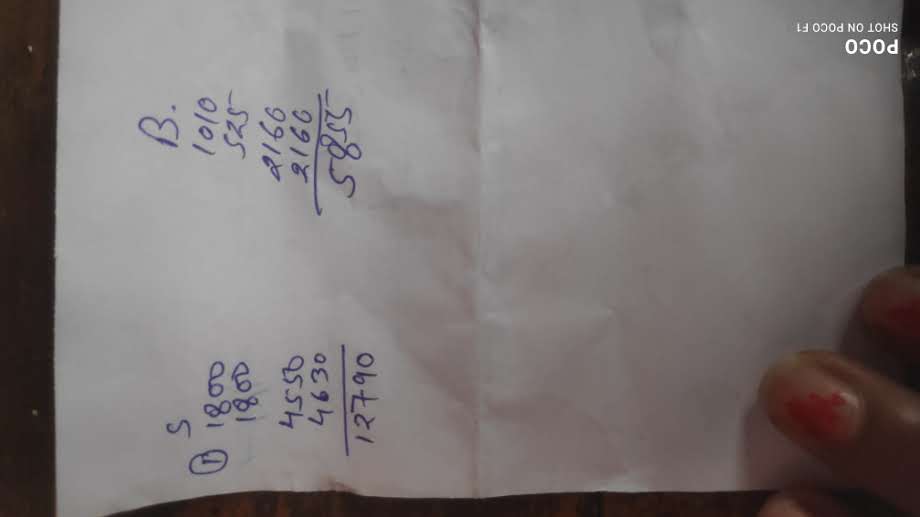 S
① 1800
1800
4550
4630
12790
B.
1010
525
2166
2166
5855
POCO
SHOT ON POCO F1